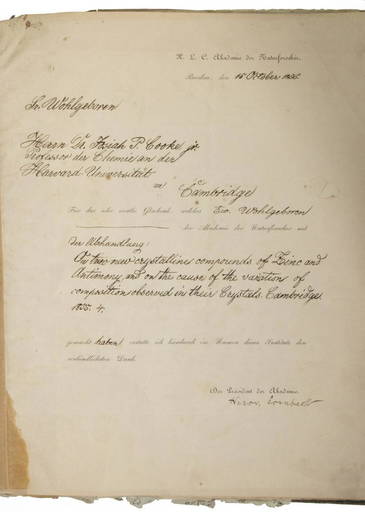 K. L. C. Akademie der Naturforscher.
Breslau, den 15 October 1856
Sr. Wohlgeboren
Herrn Dr. Josiah P. Cooke jr.
Professor der Chemie an der
Harvard Universität
zu Cambridge
Für das sehr werthe Geschenk, welches Ew. Wohlgeboren
der Akademie der Naturforscher mit
der Abhandlung:
On two new crystalline compounds of Zinc and
Antimony, and on the cause of the variation of
composition observed in their Crystals. Cambridge
1855. 4.
gemacht haben, erstatte ich hierdurch im Namen dieses Instituts den
verbindlichsten Dank.
Der Präsident der Akademie.